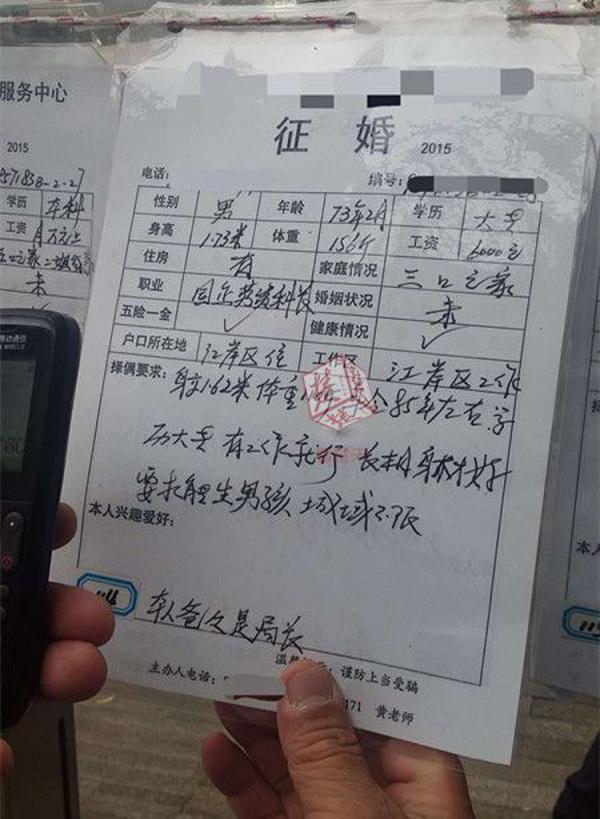 服务中心
2015
学历 本科
工资
未
征婚 2015
电话: 编号:
性别 男 年龄 73年2月 学历 大专
身高 1.73米 体重 156斤 工资 6000元
住房 有 家庭情况 三口之家
职业 国企劳资科长 婚姻状况 未
五险一金 ✓ 健康情况 ✓
户口所在地 江岸区住 工作区 江岸区工作
择偶要求: 身高1.62米 体重 85年左右 学
历大专 有工作就行 长相身材好
要求能生男孩 城域不限
本人兴趣爱好:
116
本人爸爸是局长
温 : 谨防上当受骗
主办人电话: 171 黄老师
115